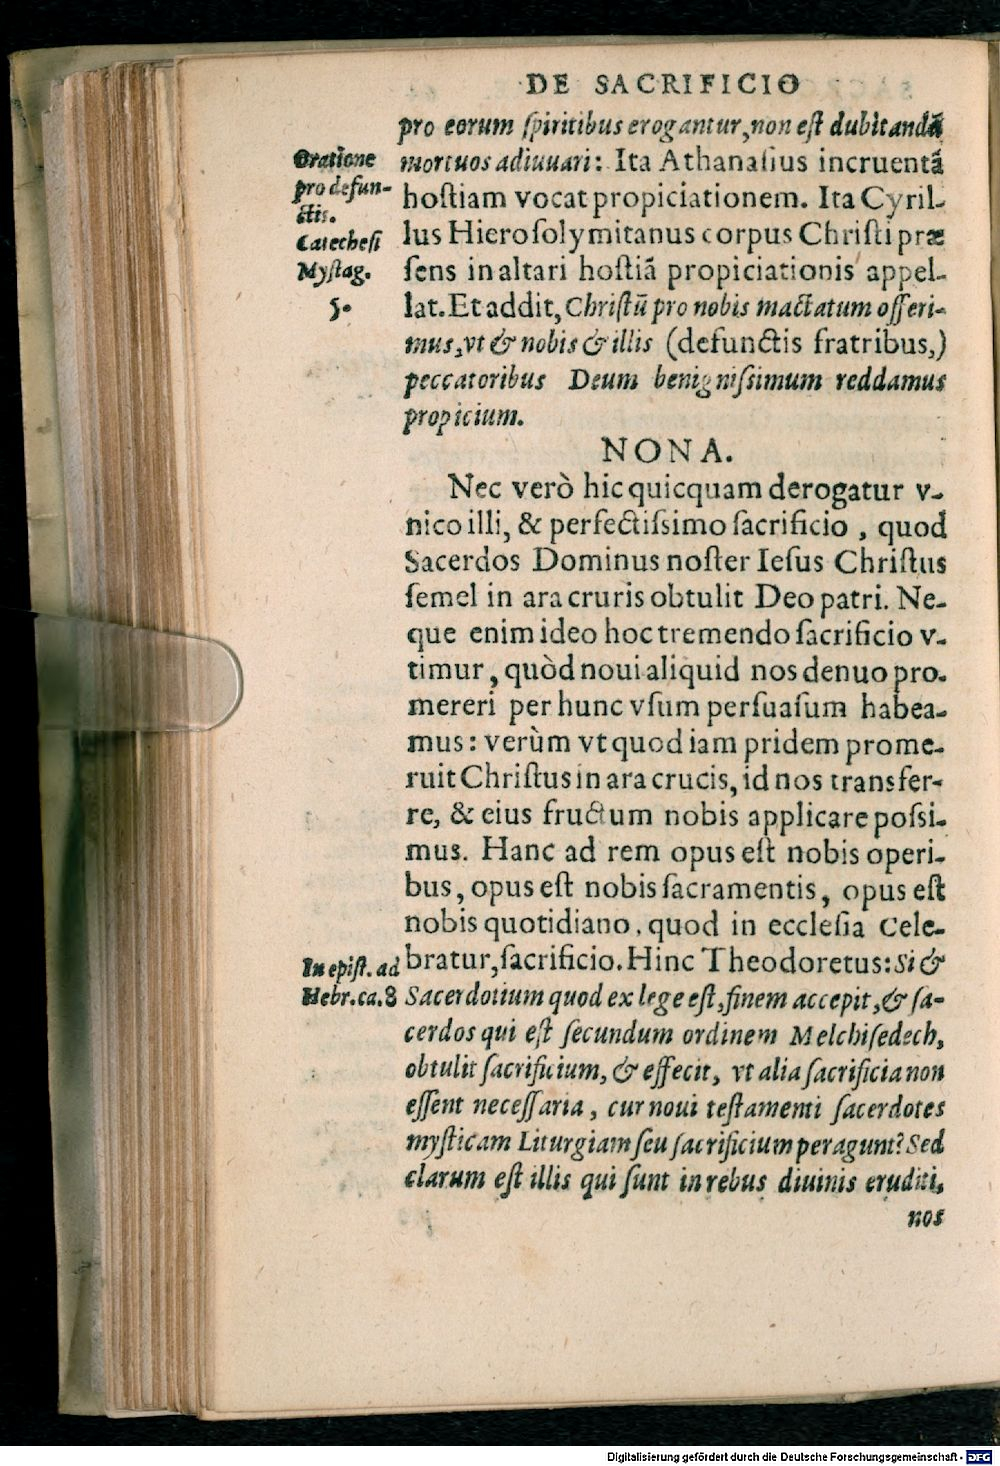 DE SACRIFICIO
pro eorum ſpiritibus erogantur, non eſt dubitandū
mortuos adiuuari: Ita Athanaſius incruentā
hoſtiam vocat propiciationem. Ita Cyril-
lus Hieroſolymitanus corpus Chriſti præ
ſens in altari hoſtiā propiciationis appel-
lat. Et addit, Chriſtū pro nobis mactatum offeri-
mus, vt & nobis & illis (defunctis fratribus,)
peccatoribus Deum benigniſsimum reddamus
propicium.
Oratione
pro defun-
ctis.
Catecheſi
Myſtag.
5.
NONA.
Nec verò hic quicquam derogatur v-
nico illi, & perfectiſsimo ſacrificio, quod
Sacerdos Dominus noſter Ieſus Chriſtus
ſemel in ara cruris obtulit Deo patri. Ne-
que enim ideo hoc tremendo ſacrificio v-
timur, quòd noui aliquid nos denuo pro-
mereri per hunc vſum perſuaſum habea-
mus: verùm vt quod iam pridem prome-
ruit Chriſtus in ara crucis, id nos transfer-
re, & eius fructum nobis applicare poſsi-
mus. Hanc ad rem opus eſt nobis operi-
bus, opus eſt nobis ſacramentis, opus eſt
nobis quotidiano, quod in eccleſia cele-
bratur, ſacrificio. Hinc Theodoretus: Si &
Sacerdotium quod ex lege eſt, finem accepit, & ſa-
cerdos qui eſt ſecundum ordinem Melchiſedech,
obtulit ſacrificium, & effecit, vt alia ſacrificia non
eſſent neceſſaria, cur noui teſtamenti ſacerdotes
myſticam Liturgiam ſeu ſacrificium peragunt? Sed
clarum eſt illis qui ſunt in rebus diuinis eruditi,
In epiſt. ad
Hebr. ca. 8
nos
Digitalisierung gefördert durch die Deutsche Forschungsgemeinschaft - DFG